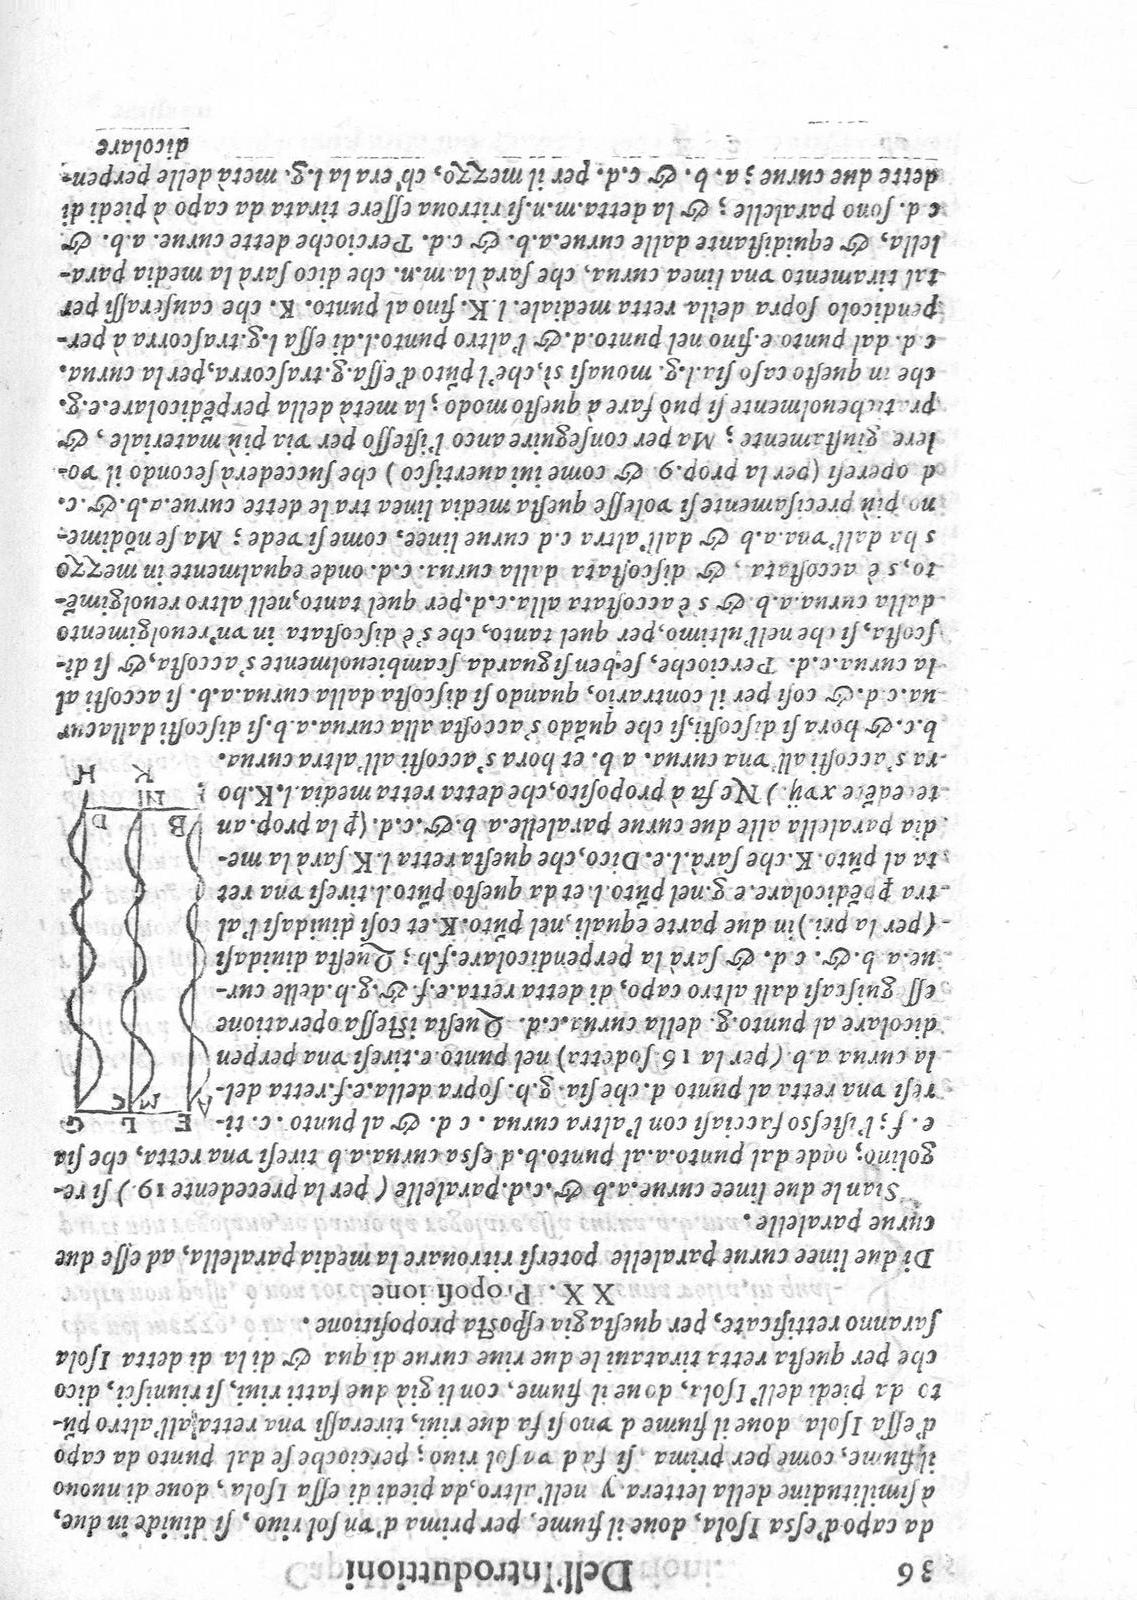 36 Dell'Introduttioni
da capo d'essa Isola, doue il fiume, per prima d'vn sol riuo, si diuide in due,
à similitudine della lettera y nell'altro, da piedi di essa Isola, doue di nuouo
il fiume, come per prima, si fà d vn sol riuo; percioche se dal punto da capo
d'essa Isola doue il fiume d vno si fa due riui, tirerassi vna retta all'altro pũ-
to da piedi dell'Isola, doue il fiume, con li già due fatti riui, si riunisci, dico
che per questa retta tirata ui le due riue curue di qua & di la di detta Isola
saranno rettificate, per questa gia esposta propositione.
XX. Propositione
Di due linee curue paralelle potersi ritrouare la media paralella, ad esse due
curue paralelle.
Sian le due linee curue.a.b &.c.d.paralelle (per la precedente 19.) si re-
golino; onde dal punto.a.al punto.b.d essa curua.a.b tiresi vna retta, che sia
e.f; l'istesso facciasi con l'altra curua.c.d. & al punto.c. ti-
resi vna retta al punto d.che sia.g.h.sopra della.e.f.retta del-
la curua a.b.(per la 16.sodetta) nel punto.e.tiresi vna perpen
dicolare al punto.g. della curua.c.d. Questa istessa operatione
esseguiscasi dall altro capo, di detta retta.e.f.&.g.h.delle cur-
ue.a b.&. c.d. & sarà la perpendicolare.f.h; Questa diuidasi
(per la pri.)in due parte equali, nel pũto.K.et cosi diuidasi l'al
tra ꝑpẽdicolare.e g.nel pũto.l.et da questo pũto.l.tiresi vna ret
ta al pũto.K.che sarà.l.e.Dico, che questa retta l.K.sarà la me-
dia paralella alle due curue paralelle.a b.&.c.d.(ꝑ la prop.an
tecedẽte xvij.) Ne fa à proposito, che detta retta media.l.K.ho
ra s'accosti all'vna curua.a b.et hora s'accosti all'altra curua.
b.c.& hora si discosti, si che quãdo s'accosta alla curua.a.b.si discosti dalla cur
ua.c.d.& cosi per il contrario, quando si discosta dalla curua.a.b.si accosti al
la curua.c.d. Percioche, se ben si guarda scambieuolmente s'accosta, & si di-
scosta, si che nell'ultimo, per quel tanto, che s'è discostata in vn'reuolgimento
dalla curua.a.b & s è accostata alla.c.d.per quel tanto, nell altro reuolgimẽ-
to, s è accostata, & discostata dalla curua.c.d.onde equalmente in mezzo
s ha dall'vna.a.b & dall'altra c.d curue linee, come si vede; Ma se nõdime-
no, più precisamente si volesse questa media linea tra le dette curue.a.b.&.c.
d operesi (per la prop.9. & come iui auertisco) che succederà secondo il vo-
lere giustamente; Ma per conseguire anco l'istesso per via più materiale, &
pratticheuolmente si può fare à questo modo; la metà della perpẽdicolare.e.g.
che in questo caso sia.l.g. mouasi sì, che'l pũto d'essa.g.trascorra, per la curua.
c.d.dal punto e.fino nel punto.d.& l'altro punto.l.di essa l.g.trascorra à per-
pendicolo sopra della retta mediale. l K. fino al punto. K. che causerassi per
tal tiramento vna linea curua, che sarà la m.n. che dico sarà la media para-
lella, & equidistante dalle curue.a.b. & c.d. Percioche dette curue. a.b. &
c d. sono paralelle; & la detta.m.n.si ritroua essere tirata da capo à piedi di
dette due curue; a. b. & c.d. per il mezzo, ch'era la l.g. metà delle perpen-
dicolare
G L E
C M A
D N B
H K